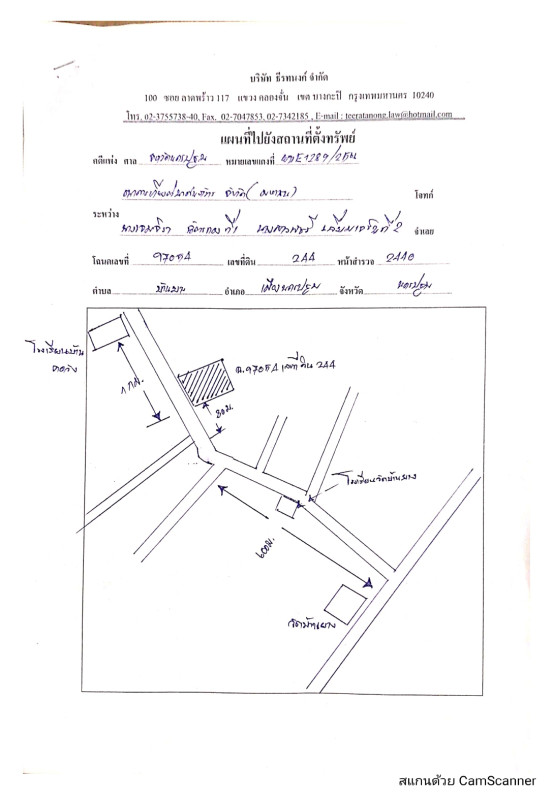 บริษัท ธีรทนงค์ จำกัด
100 ซอย ลาดพร้าว 117 แขวง คลองจั่น เขต บางกะปิ กรุงเทพมหานคร 10240
โทร. 02-3755738-40, Fax. 02-7047853, 02-7342185 , E-mail : teeratanong.law@hotmail.com
แผนที่ไปยังสถานที่ตั้งทรัพย์
คดีแพ่ง ศาล จังหวัดนครปฐม หมายเลขแดงที่ ผบE1289/25
จำกัด (มหาชน) โจทก์
ระหว่าง
ที่ 1 นางสาว ที่ 2 จำเลย
โฉนดเลขที่ 97054 เลขที่ดิน 244 หน้าสำรวจ 2440
ตำบล บ้านยาง อำเภอ เมืองนครปฐม จังหวัด นครปฐม
โรงเรียนบ้าน
1 กม.
ฉ.97054 เลขที่ดิน 244
30ม.
โรงเรียนวัดบ้านยาง
600ม.
วัดบ้านยาง
สแกนด้วย CamScanner